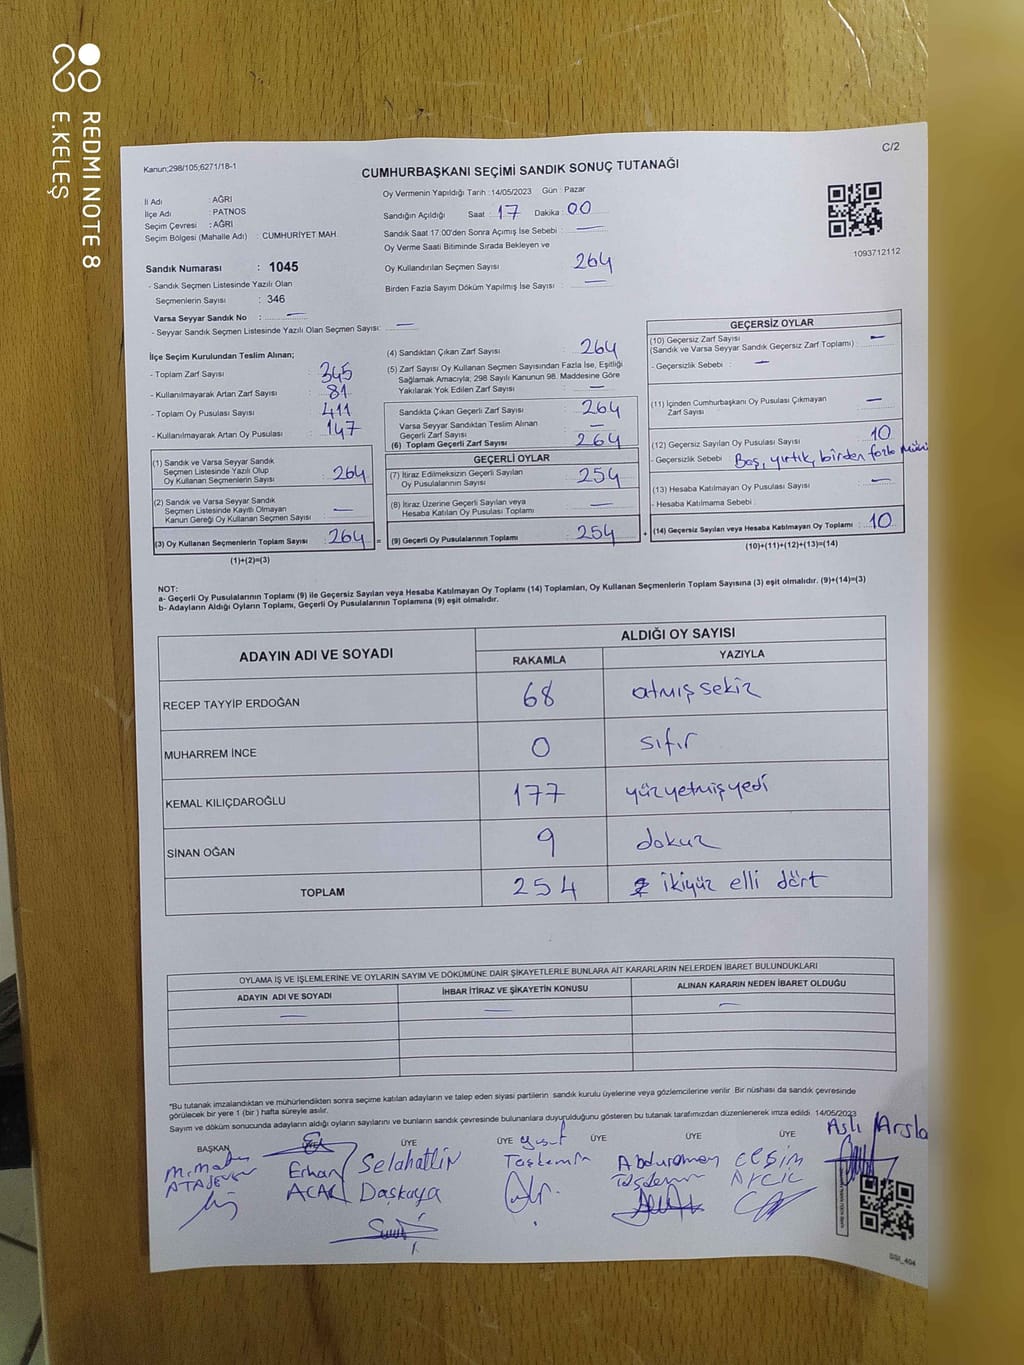 REDMI NOTE 8
E.KELEŞ
Kanun;298/105;6271/18-1
C/2
CUMHURBAŞKANI SEÇİMİ SANDIK SONUÇ TUTANAĞI
İl Adı : AĞRI
İlçe Adı : PATNOS
Seçim Çevresi : AĞRI
Seçim Bölgesi (Mahalle Adı) : CUMHURİYET MAH.
Sandık Numarası : 1045
- Sandık Seçmen Listesinde Yazılı Olan
Seçmenlerin Sayısı : 346
Varsa Seyyar Sandık No : —
- Seyyar Sandık Seçmen Listesinde Yazılı Olan Seçmen Sayısı: —
Oy Vermenin Yapıldığı Tarih : 14/05/2023 Gün : Pazar
Sandığın Açıldığı Saat : 17 Dakika : 00
Sandık Saat 17.00'den Sonra Açımış İse Sebebi : —
Oy Verme Saati Bitiminde Sırada Bekleyen ve
Oy Kullandırılan Seçmen Sayısı 264
Birden Fazla Sayım Döküm Yapılmış İse Sayısı : —
1093712112
İlçe Seçim Kurulundan Teslim Alınan;
- Toplam Zarf Sayısı : 345
- Kullanılmayarak Artan Zarf Sayısı : 81
- Toplam Oy Pusulası Sayısı : 411
- Kullanılmayarak Artan Oy Pusulası : 147
(1) Sandık ve Varsa Seyyar Sandık
Seçmen Listesinde Yazılı Olup
Oy Kullanan Seçmenlerin Sayısı : 264
(2) Sandık ve Varsa Seyyar Sandık
Seçmen Listesinde Kayıtlı Olmayan
Kanun Gereği Oy Kullanan Seçmen Sayısı : —
(3) Oy Kullanan Seçmenlerin Toplam Sayısı : 264 =
(1)+(2)=(3)
(4) Sandıktan Çıkan Zarf Sayısı : 264
(5) Zarf Sayısı Oy Kullanan Seçmen Sayısından Fazla İse, Eşitliği
Sağlamak Amacıyla; 298 Sayılı Kanunun 98. Maddesine Göre
Yakılarak Yok Edilen Zarf Sayısı : —
Sandıkta Çıkan Geçerli Zarf Sayısı : 264
Varsa Seyyar Sandıktan Teslim Alınan
Geçerli Zarf Sayısı : —
(6) Toplam Geçerli Zarf Sayısı : 264
GEÇERLİ OYLAR
(7) İtiraz Edilmeksizin Geçerli Sayılan
Oy Pusulalarının Sayısı : 254
(8) İtiraz Üzerine Geçerli Sayılan veya
Hesaba Katılan Oy Pusulası Toplamı : —
(9) Geçerli Oy Pusulalarının Toplamı : 254 +
GEÇERSİZ OYLAR
(10) Geçersiz Zarf Sayısı
(Sandık ve Varsa Seyyar Sandık Geçersiz Zarf Toplamı) : —
- Geçersizlik Sebebi : —
(11) İçinden Cumhurbaşkanı Oy Pusulası Çıkmayan
Zarf Sayısı : —
(12) Geçersiz Sayılan Oy Pusulası Sayısı : 10
- Geçersizlik Sebebi : Boş, yırtık, birden fazla
(13) Hesaba Katılmayan Oy Pusulası Sayısı : —
- Hesaba Katılmama Sebebi :
(14) Geçersiz Sayılan veya Hesaba Katılmayan Oy Toplamı : 10
(10)+(11)+(12)+(13)=(14)
NOT:
a- Geçerli Oy Pusulalarının Toplamı (9) ile Geçersiz Sayılan veya Hesaba Katılmayan Oy Toplamı (14) Toplamları, Oy Kullanan Seçmenlerin Toplam Sayısına (3) eşit olmalıdır. (9)+(14)=(3)
b- Adayların Aldığı Oyların Toplamı, Geçerli Oy Pusulalarının Toplamına (9) eşit olmalıdır.
ADAYIN ADI VE SOYADI ALDIĞI OY SAYISI
RAKAMLA YAZIYLA
RECEP TAYYİP ERDOĞAN 68 atmış sekiz
MUHARREM İNCE 0 sıfır
KEMAL KILIÇDAROĞLU 177 yüzyetmişyedi
SİNAN OĞAN 9 dokuz
TOPLAM 254 ikiyüz elli dört
OYLAMA İŞ VE İŞLEMLERİNE VE OYLARIN SAYIM VE DÖKÜMÜNE DAİR ŞİKAYETLERLE BUNLARA AİT KARARLARIN NELERDEN İBARET BULUNDUKLARI
ADAYIN ADI VE SOYADI İHBAR İTİRAZ VE ŞİKAYETİN KONUSU ALINAN KARARIN NEDEN İBARET OLDUĞU
— — —
"Bu tutanak imzalandıktan ve mühürlendikten sonra seçime katılan adayların ve talep eden siyasi partilerin sandık kurulu üyelerine veya gözlemcilerine verilir Bir nüshası da sandık çevresinde
görülecek bir yere 1 (bir ) hafta süreyle asılır.
Sayım ve döküm sonucunda adayların aldığı oyların sayılarını ve bunların sandık çevresinde bulunanlara duyurulduğunu gösteren bu tutanak tarafımızdan düzenlenerek imza edildi. 14/05/2023
BAŞKAN ÜYE ÜYE ÜYE ÜYE ÜYE ÜYE
Erhan ACAR
Selahattin Daşkaya
Yusuf Taşkemin
Abdurahman
Aslı Arsla
SSİ_404